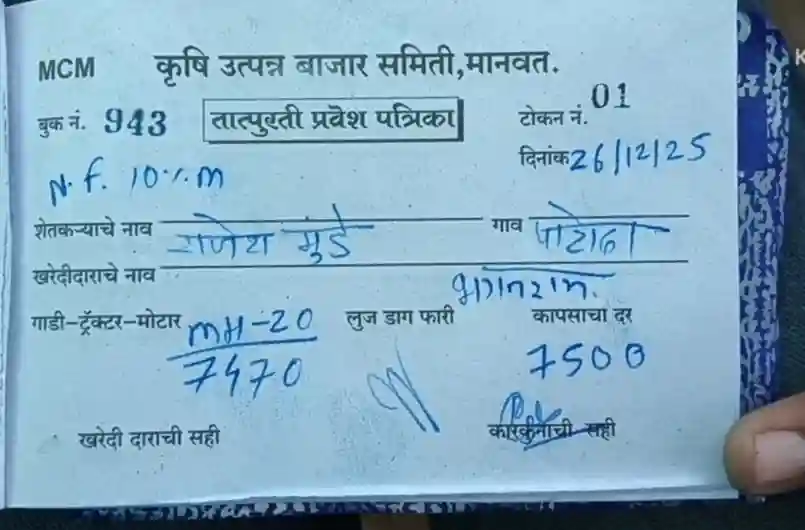 MCM कृषि उत्पन्न बाजार समिती,मानवत.
बुक नं. 943 तात्पुरती प्रवेश पत्रिका टोकन नं. 01
दिनांक 26/12/25
N.F. 10%.m
शेतकऱ्याचे नाव गणेश मुंडे गाव पाटोदा
खरेदीदाराचे नाव
गाडी-ट्रॅक्टर-मोटार MH-20 लुज डाग फारी कापसाचा दर
7470 7500
खरेदी दाराची सही कारकुनाची सही